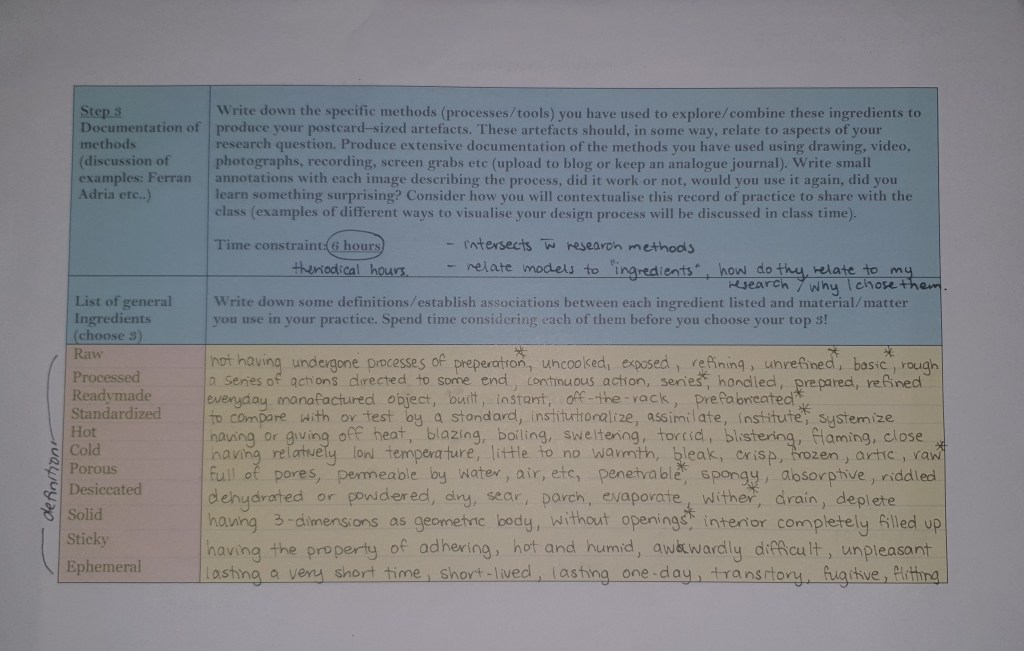 Step 3
Documentation of
methods
(discussion of
examples: Ferran
Adria etc..)
Write down the specific methods (processes/tools) you have used to explore/combine these ingredients to
produce your postcard–sized artefacts. These artefacts should, in some way, relate to aspects of your
research question. Produce extensive documentation of the methods you have used using drawing, video,
photographs, recording, screen grabs etc (upload to blog or keep an analogue journal). Write small
annotations with each image describing the process, did it work or not, would you use it again, did you
learn something surprising? Consider how you will contextualise this record of practice to share with the
class (examples of different ways to visualise your design process will be discussed in class time).
Time constraint: 6 hours
theriodical hours.
- intersects w̄ research methods
- relate models to "ingredients", how do thy relate to my
research / why I chose them.
List of general
Ingredients
(choose 3)
Write down some definitions/establish associations between each ingredient listed and material/matter
you use in your practice. Spend time considering each of them before you choose your top 3!
definitions
Raw
not having undergone processes of preperation*, uncooked, exposed, refining, unrefined*, basic*, rough
Processed
a series of actions directed to some end, continuous action, series*, handled, prepared, refined
Readymade
everyday manofactured object, built, instant, off-the-rack, prefabricated*
Standardized
to compare with or test by a standard, institutionalize, assimilate, institute*, systemize
Hot
having or giving off heat, blazing, boiling, sweltering, torrid, blistering, flaming, close
Cold
having relatively low temperature, little to no warmth, bleak, crisp, frozen, artic, raw*
Porous
full of pores, permeable by water, air, etc, penetrable*, spongy, absorptive, riddled
Desiccated
dehydrated or powdered, dry, sear, parch, evaporate, wither*, drain, deplete
Solid
having 3-dimensions as geometric body, without openings*, interior completely filled up
Sticky
having the property of adhering, hot and humid, awkwardly difficult, unpleasant
Ephemeral
lasting a very short time, short-lived, lasting one-day, transitory, fugitive, flitting